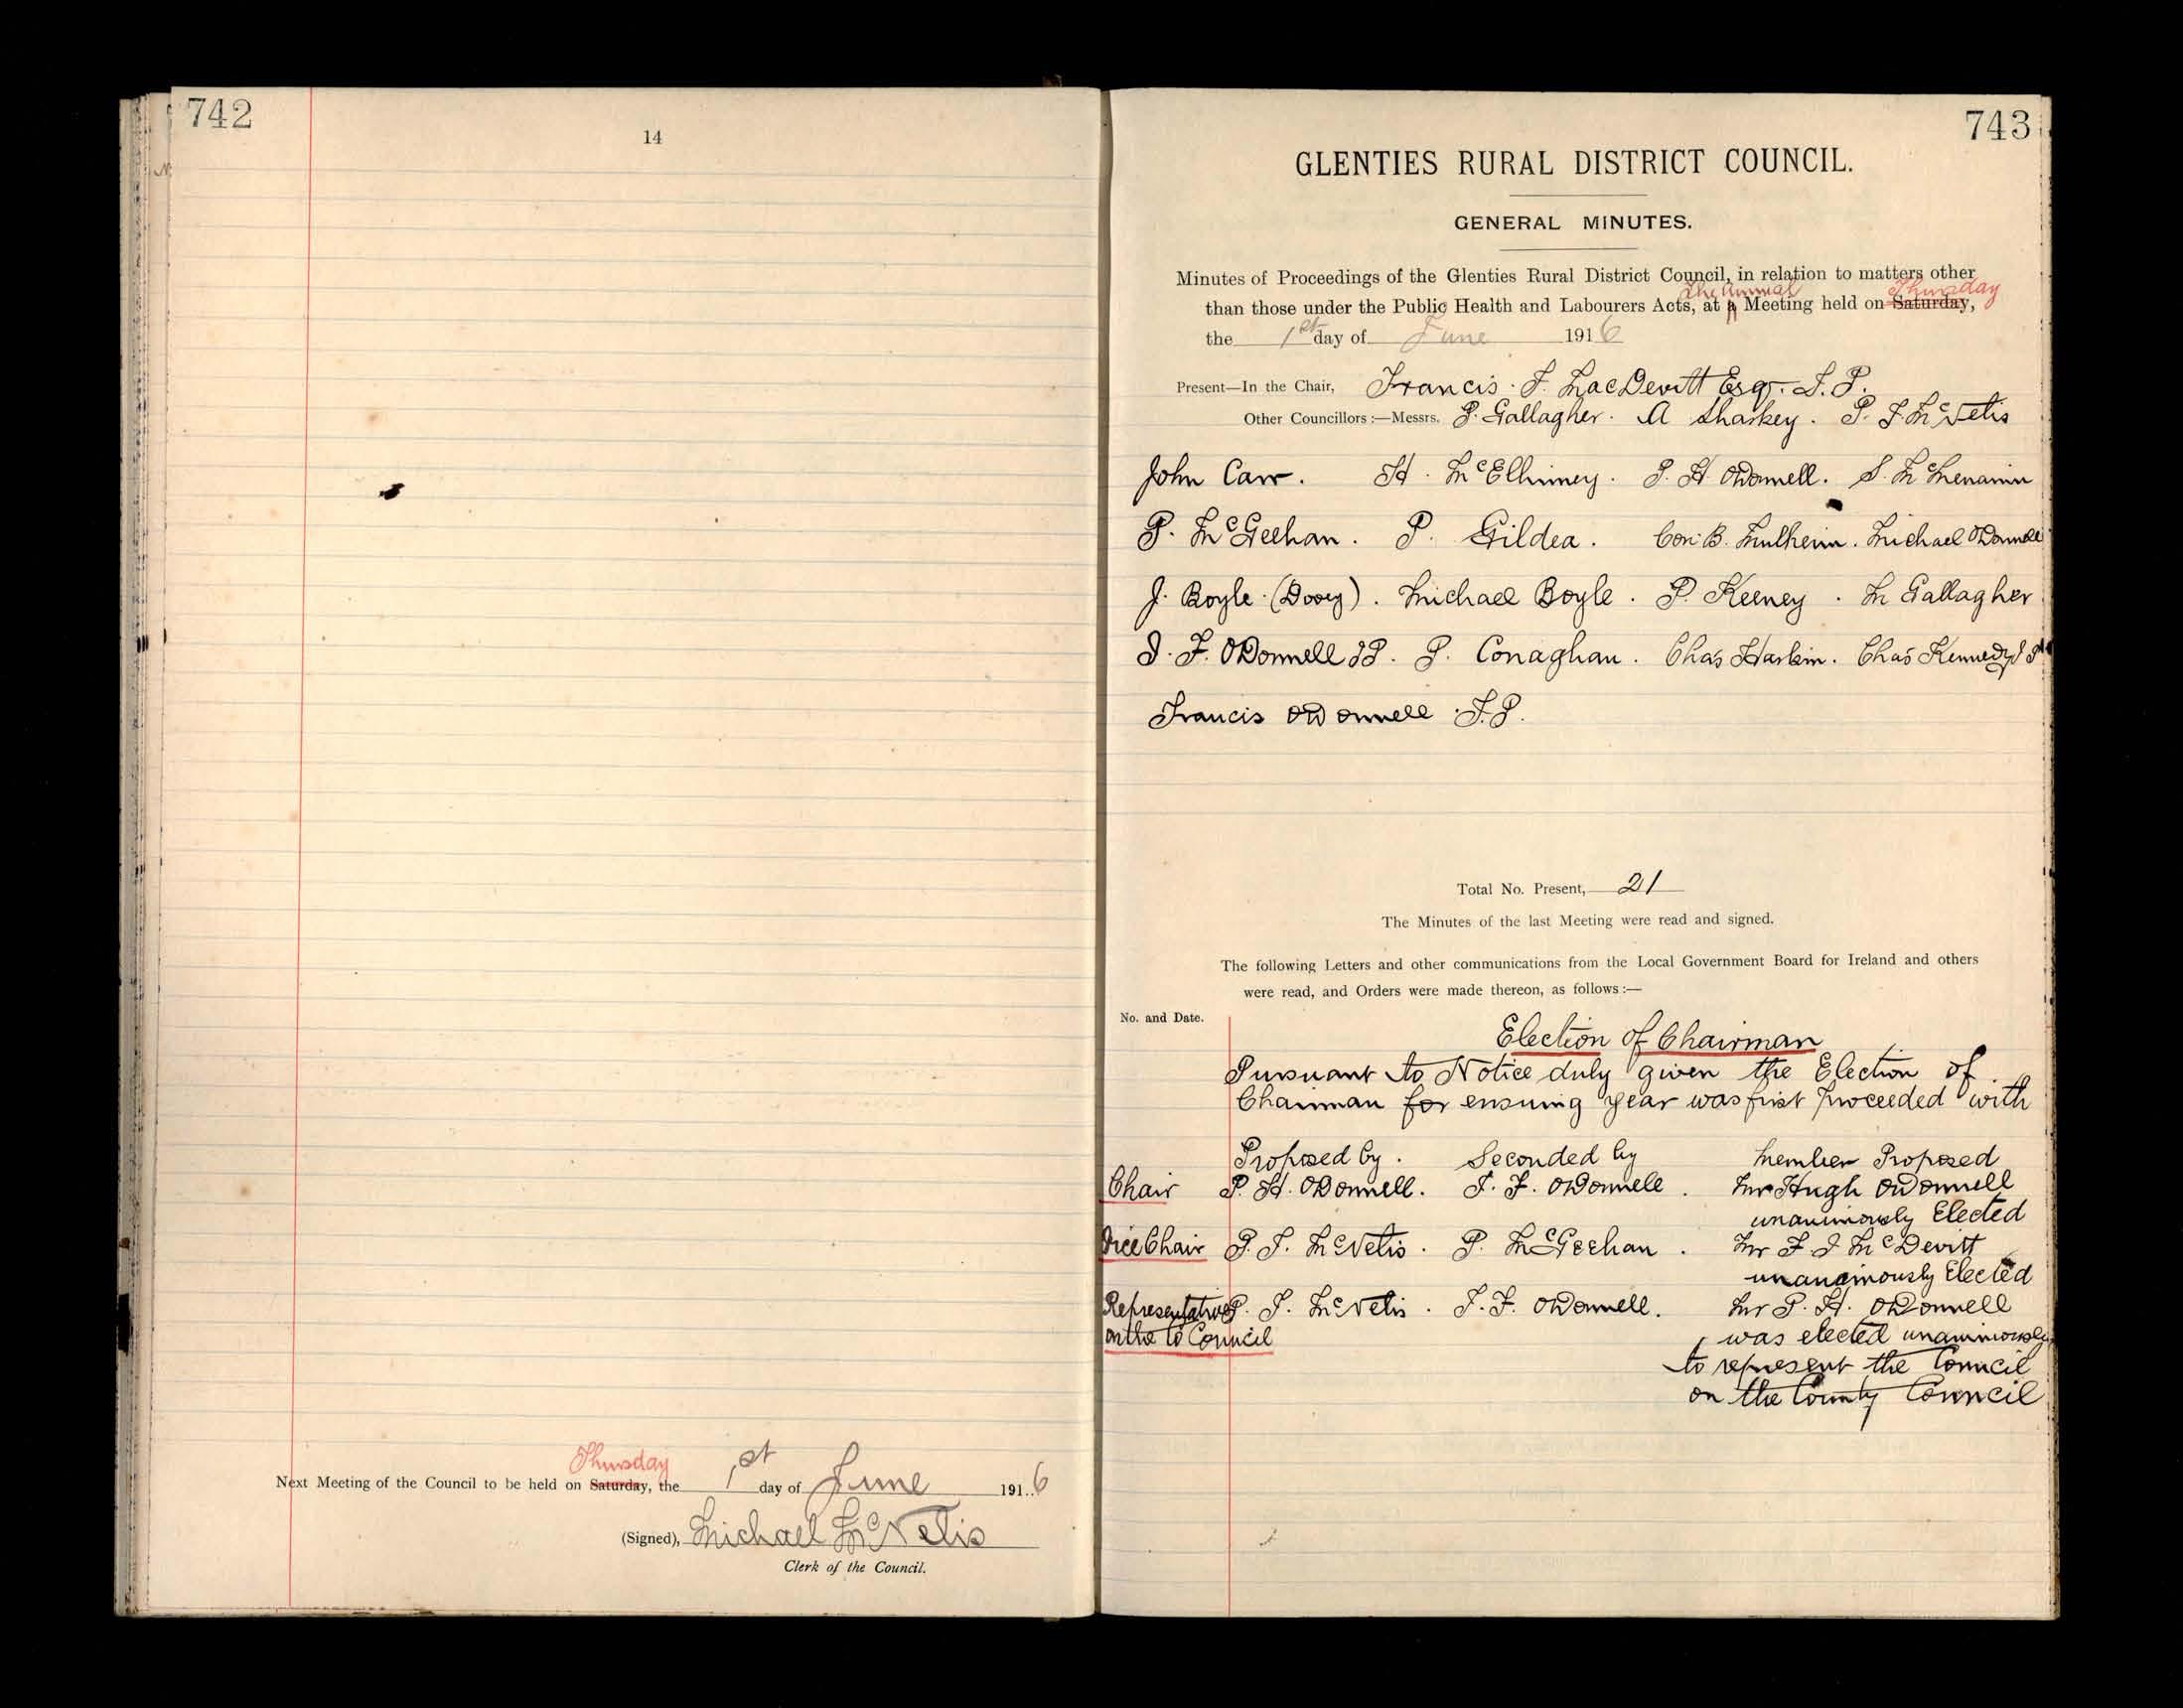 742
14
Thursday
Next Meeting of the Council to be held on Saturday, the 1st day of June 1916
(Signed), Michael McNelis
Clerk of the Council.
743
GLENTIES RURAL DISTRICT COUNCIL.
GENERAL MINUTES.
Minutes of Proceedings of the Glenties Rural District Council, in relation to matters other
the Annual Thursday
than those under the Public Health and Labourers Acts, at a Meeting held on Saturday,
the 1st day of June 1916
Present—In the Chair, Francis J. MacDevitt Esqr. J.P.
Other Councillors:—Messrs. P. Gallagher. A Sharkey. P. J. McNelis
John Carr. H. McElhinney. P. H. O'Donnell. S. McMenamin
P. McGeehan. P. Gildea. Con: B. Mulhern. Michael O'Donnell
J. Boyle (Dooey). Michael Boyle. P. Keeney. M Gallagher
J. F. O'Donnell JP. P. Conaghan. Chas Harkin. Chas Kennedy JP
Francis O'Donnell J.P.
Total No. Present, 21
The Minutes of the last Meeting were read and signed.
The following Letters and other communications from the Local Government Board for Ireland and others
were read, and Orders were made thereon, as follows:—
No. and Date.
Election of Chairman
Pursuant to Notice duly given the Election of
Chairman for ensuing year was first proceeded with
Proposed by. Seconded by Member Proposed
Chair P. H. O'Donnell. J. F. O'Donnell. Mr Hugh O'Donnell
unanimously Elected
Vice Chair P. J. McNelis. P. McGeehan. Mr F J McDevitt
unanimously Elected
Representative P. J. McNelis. J. F. O'Donnell. Mr P. H. O'Donnell
on the Co Council was elected unanimously
to represent the Council
on the County Council